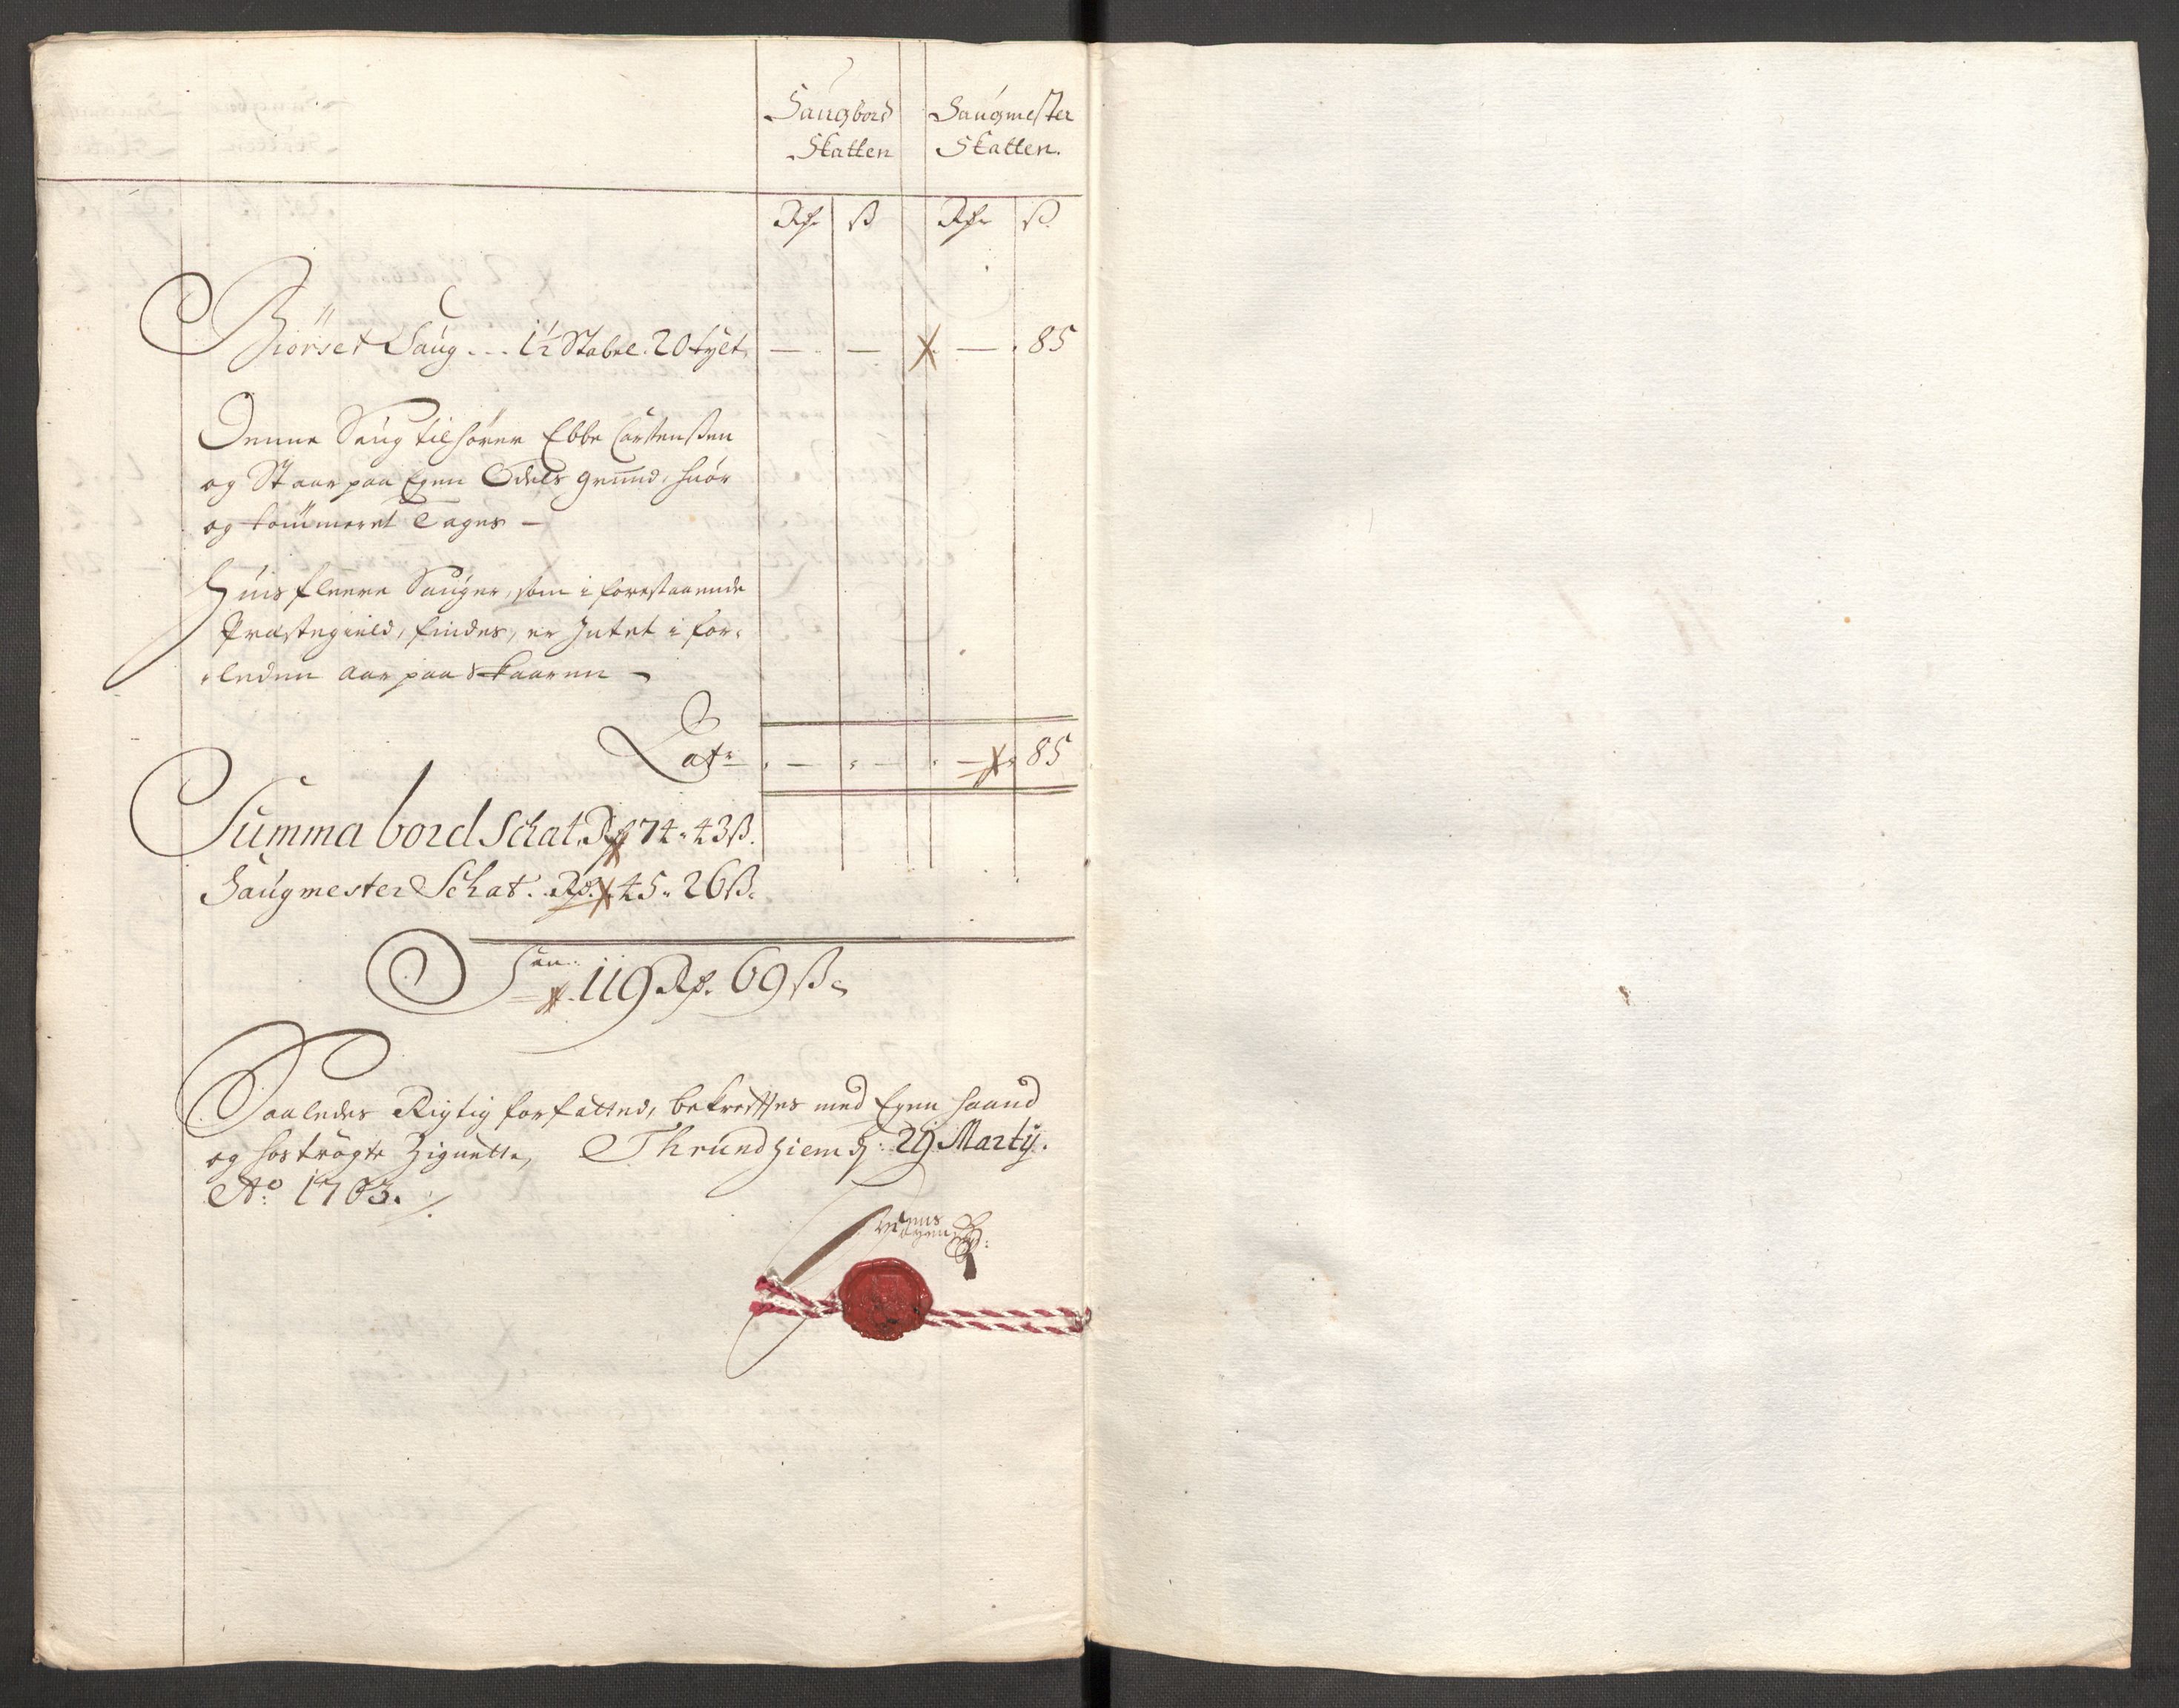 Saugbord Saugmester
Skatten Skatten.
Rd. ß Rd. ß
Biörset Saug... 1½ Stabel. 20 tylt. — . — — . 85
Denne Saug tilhører Ebbe Carstenßen
og Staar paa Egen Odels grund, huor
og tømmeret Tages —
Huis fleere Sauger, som i forestaaende
Præstegield, findes, er Intet i for-
leden aar paa Skaaren —
Lat. . — . — . — . 85
Summa bord Schat. Rd 74. 43 ß.
Saugmester Schat. Rd. 45. 26 ß.
119 Rd. 69 ß.
Saaledes Rigtig forfatted, bekreftes med Egen haand
og hoströgte Zignette, Thrundhiem d: 29 Martij.
Ao. 1703. /.